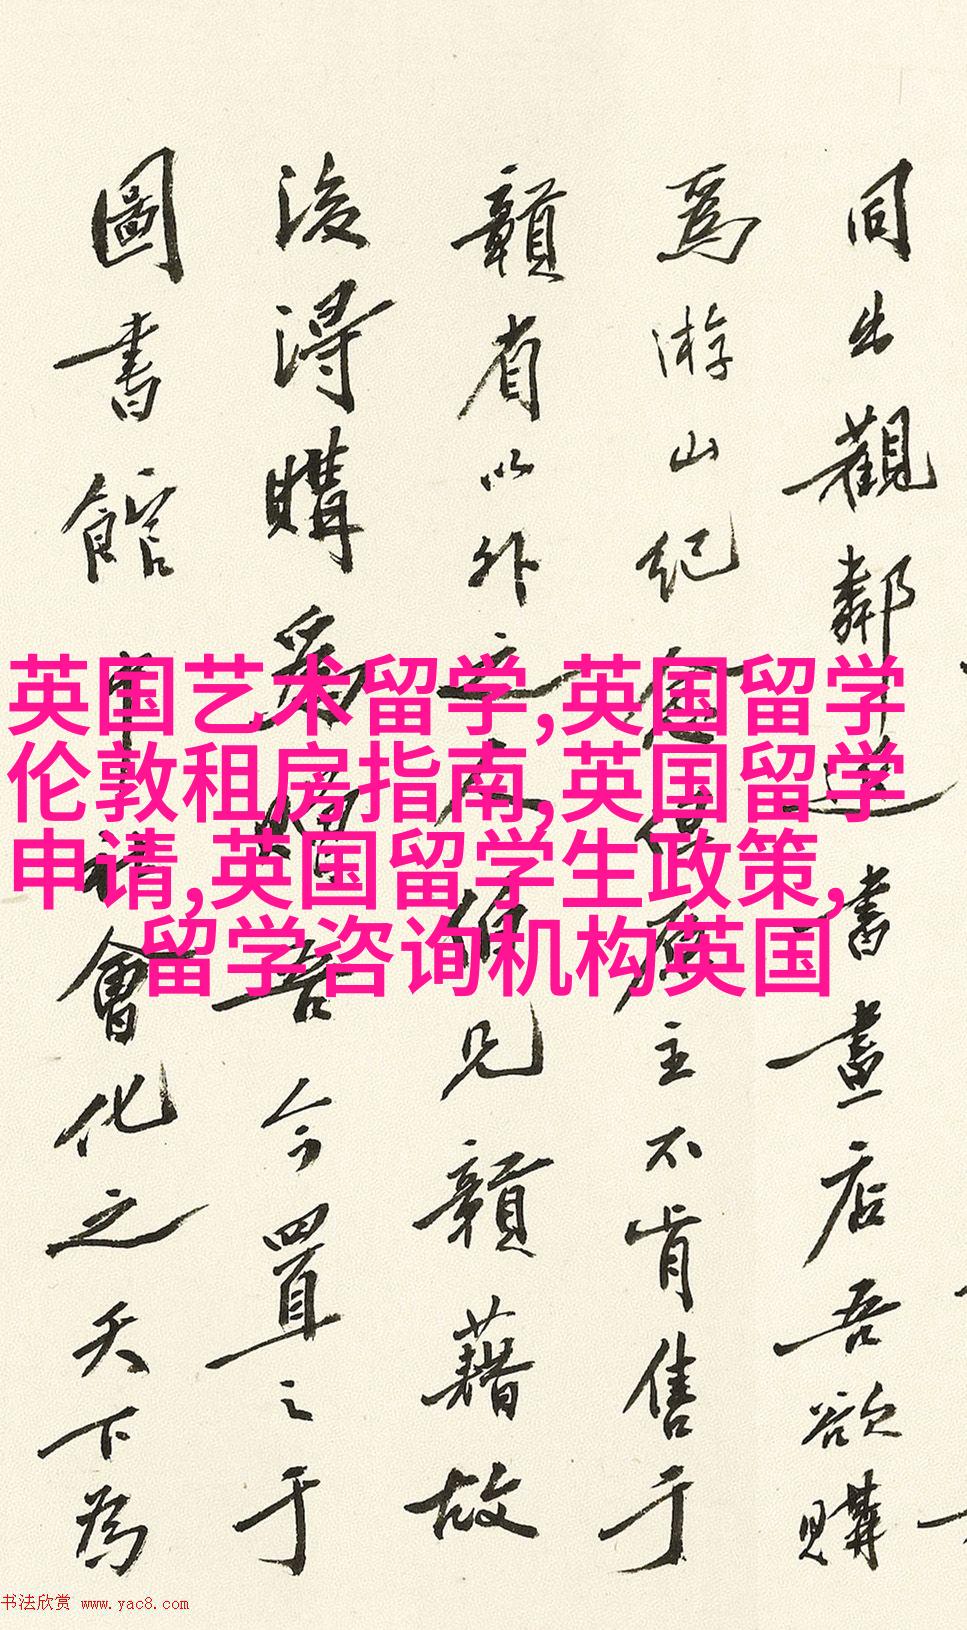 同出觀鄰近書畫店吾欲購
爲游山紀念但店主不肯售于
贛省以外之人但見贛藉故
後得購爲贈吾今置之于
圖書館會化之天下為
英国艺术留学,英国留学
伦敦租房指南,英国留学
申请,英国留学生政策,
留学咨询机构英国
书法欣赏 www.yac8.com